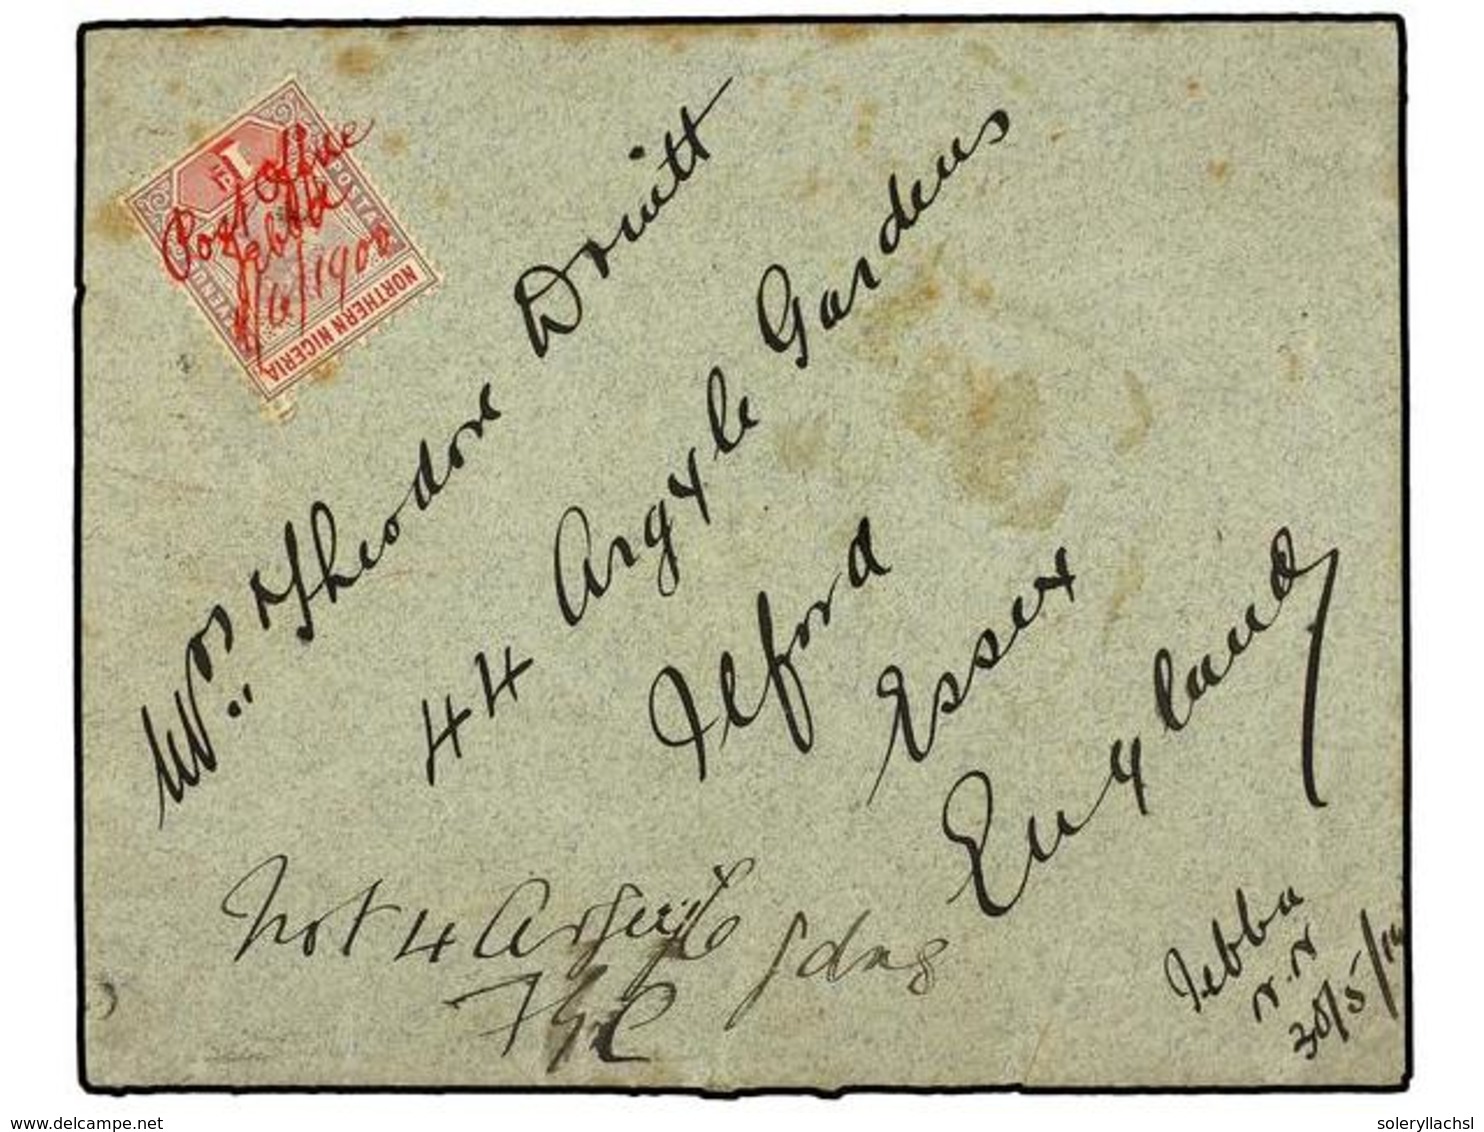 POSTAGE
REVENUE
1d
NORTHERN NIGERIA
Post Office
Jebba
/6/1900
Mrs Theodore Druitt
44 Argyle Gardens
Ilford
Essex
England
Not 4 Argyle gdns
Jebba
N.N
30/5/
www.delcampe.net
soleryllachsl